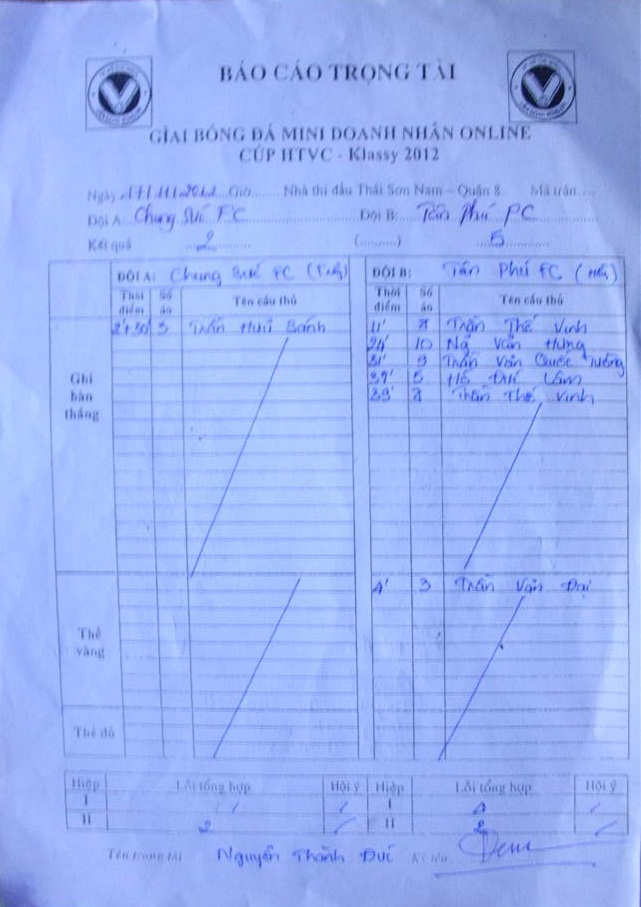 BÁO CÁO TRỌNG TÀI
GIẢI BÓNG ĐÁ MINI DOANH NHÂN ONLINE
CÚP HTVC - Klassy 2012
Ngày 17/11/2012 Giờ........ Nhà thi đấu Thái Sơn Nam – Quận 8 Mã trận.....
Đội A: Chung Sức FC Đội B: Tân Phú FC
Kết quả 2 (.........) 5
ĐỘI A: Chung Sức FC ĐỘI B: Tân Phú FC
Thời điểm Số áo Tên cầu thủ Thời điểm Số áo Tên cầu thủ
Ghi bàn thắng
2'+30' Trần Hữu 11' Trần Thế Vinh
24' 10 Văn Hưng
31' 9 Trần Văn Quốc
5 Hồ Đức Lâm
Trần Thế Vinh
Thẻ vàng
4' 3 Trần Văn Đại
Thẻ đỏ
Hiệp Lỗi tổng hợp Hội ý Hiệp Lỗi tổng hợp Hội ý
I I
II 2 II 2
Tên trọng tài Nguyễn Thành Đức Ký tên